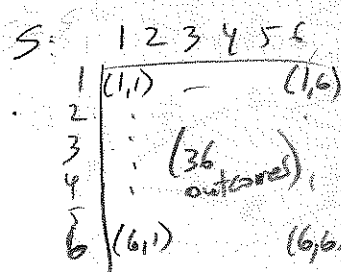 S: 1 2 3 4 5 6
1 (1,1) — (1,6)
2
3 (36
4 outcomes)
5
6 (6,1) (6,6